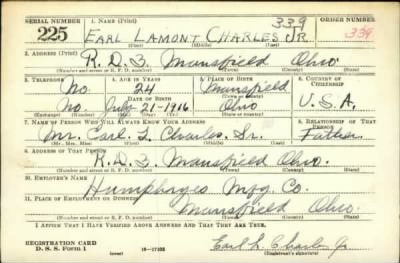 SERIAL NUMBER 1. NAME (Print) 339 ORDER NUMBER
225 EARL LAMONT CHARLES JR. 339
(First) (Middle) (Last)
2. ADDRESS (Print)
R.D.3 Mansfield Ohio.
(Number and street or R. F. D. number) (Town) (County) (State)
3. TELEPHONE 4. AGE IN YEARS 5. PLACE OF BIRTH 6. COUNTRY OF CITIZENSHIP
No. 24 Mansfield
DATE OF BIRTH (Town or county)
No. July 21-1916 Ohio U.S.A.
(Exchange) (Number) (Mo.) (Day) (Yr.) (State or country)
7. NAME OF PERSON WHO WILL ALWAYS KNOW YOUR ADDRESS 8. RELATIONSHIP OF THAT PERSON
Mr. Earl L Charles, Sr. Father
(Mr., Mrs., Miss) (First) (Middle) (Last)
9. ADDRESS OF THAT PERSON
R.D.3 Mansfield Ohio.
(Number and street or R. F. D. number) (Town) (County) (State)
10. EMPLOYER'S NAME
Humphryes Mfg. Co.
11. PLACE OF EMPLOYMENT OR BUSINESS
Mansfield Ohio.
(Number and street or R. F. D. number) (Town) (County) (State)
I AFFIRM THAT I HAVE VERIFIED ABOVE ANSWERS AND THAT THEY ARE TRUE.
REGISTRATION CARD
D. S. S. Form 1 (over) 16-17105 Earl L. Charles Jr
(Registrant's signature)